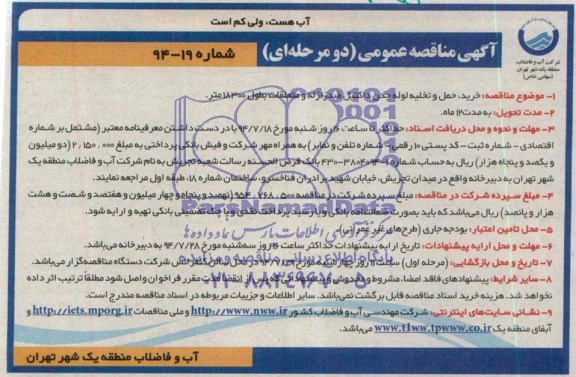 آب هست، ولی کم است
شرکت آب و فاضلاب
منطقه یک شهر تهران
(سهامی خاص)
آگهی مناقصه عمومی (دو مرحله‌ای)
شماره ۱۹-۹۴
۱- موضوع مناقصه: خرید، حمل و تخلیه لوله چدن داکتیل ضد زلزله و متعلقات بطول ۱۸۳۰۰ متر.
۲- مدت تحویل: به مدت ۱۲ ماه.
۳- مهلت و نحوه و محل دریافت اسناد: حداکثر تا ساعت ۱۶ روز شنبه مورخ ۹۴/۷/۱۸ با در دست داشتن معرفینامه معتبر (مشتمل بر شماره
اقتصادی - شماره ثبت - کد پستی ۱۰ رقمی - شماره تلفن و نمابر) به همراه مهر شرکت و فیش بانکی پرداختی به مبلغ ۲،۱۵۰،۰۰۰ (دو میلیون
و یکصد و پنجاه هزار) ریال به حساب شماره بانک قرض الحسنه رسالت شعبه تجریش به نام شرکت آب و فاضلاب منطقه یک
شهر تهران به دبیرخانه واقع در میدان تجریش، خیابان شهید برادران فناخسرو، ساختمان شماره ۱۸، طبقه اول مراجعه نمایند.
۴- مبلغ سپرده شرکت در مناقصه: مبلغ سپرده شرکت در مناقصه ۹۵۴،۷۶۸،۵۰۰ (نهصد و پنجاه و چهار میلیون و هفتصد و شصت و هشت
هزار و پانصد) ریال می‌باشد که باید بصورت ضمانتنامه بانکی و یا رسید پرداخت نقدی و یا چک تضمینی بانکی تهیه و ارایه شود.
۵- محل تامین اعتبار: بودجه جاری (طرح‌های غیر عمرانی).
۶- مهلت و محل ارایه پیشنهادات: تاریخ ارایه پیشنهادات حداکثر ساعت ۱۶ روز سه‌شنبه مورخ ۹۴/۷/۲۸ به دبیرخانه می‌باشد.
۷- تاریخ و محل بازگشایی: (مرحله اول) ساعت روز چهارشنبه مورخ در محل سالن شرکت دستگاه مناقصه‌گزار می‌باشد.
۸- سایر شرایط: پیشنهادهای فاقد امضا، مشروط و مخدوش و پیشنهاداتی که پس از انقضا مدت مقرر فراخوان واصل شود مطلقاً ترتیب اثر داده
نخواهد شد. هزینه خرید اسناد مناقصه قابل برگشت نمی‌باشد. سایر اطلاعات و جزییات مربوطه در اسناد مناقصه مندرج است.
۹- نشانی سایت‌های اینترنتی: شرکت مهندسی آب و فاضلاب کشور http://www.nww.ir و ملی مناقصات http://iets.mporg.ir و
آبفای منطقه یک www.t1ww.tpwww.co.ir می‌باشد.
آب و فاضلاب منطقه یک شهر تهران
ParsNamadData
گردآوری اطلاعات پارس نماد داده‌ها
پایگاه اطلاع رسانی مناقصه و مزایده
۰۲۱-۸۸۳۴۹۶۷۰-۵